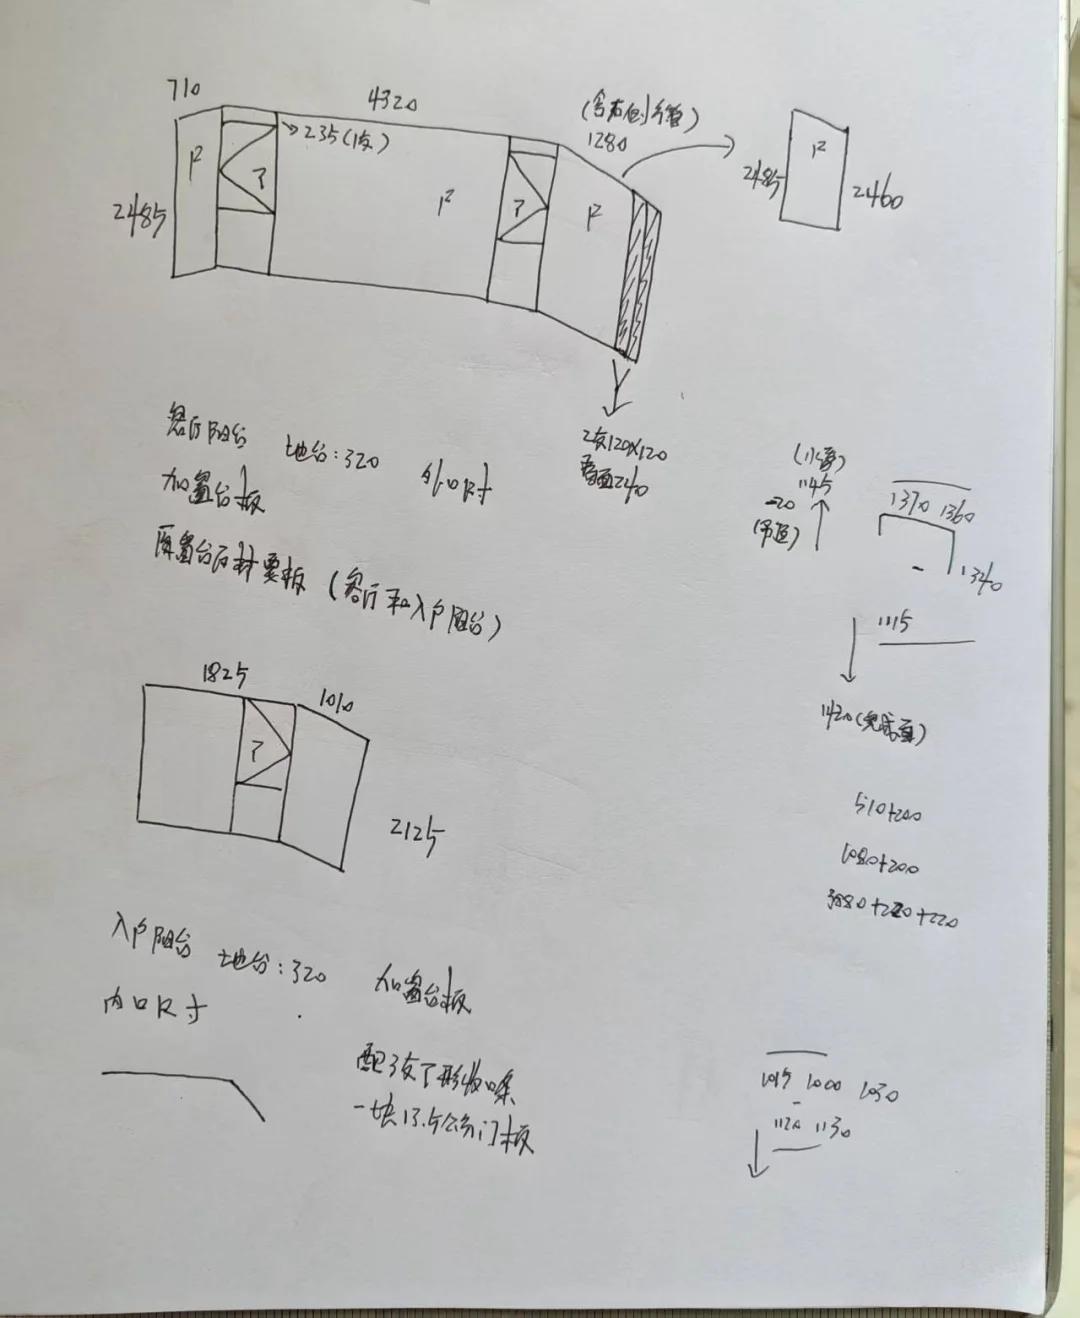 710
4320
235(1支)
1280
F
?
F
?
F
2485
F
2485
2460
2支120X120
看面240
客厅阳台 地台:320 外口尺寸
加窗台板
原窗台石材要板(客厅和入户阳台)
1145
-20
(吊顶)
1370 1360
1340
1115
1420
1825
1010
?
2125
510+200
1080+200
3880+220+220
入户阳台 地台:320 加窗台板
内口尺寸
配3支T形收口条
一块13.5公分门板
1015 1000 1030
1120 1130